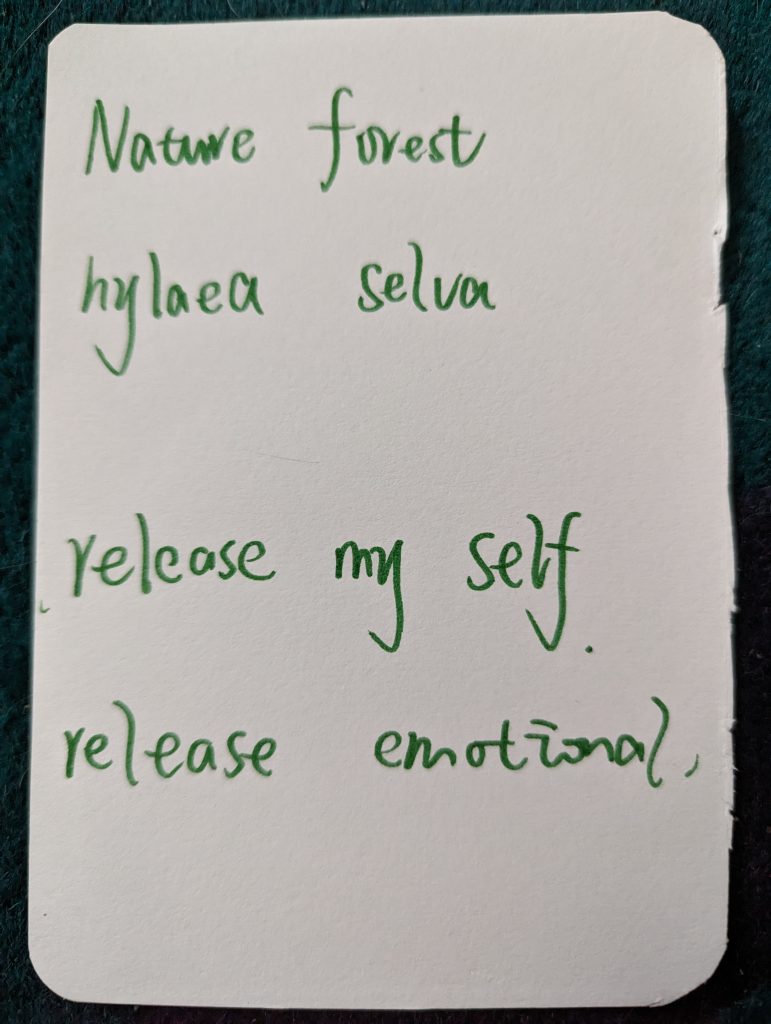 Nature forest
hylaea selva
release my self.
release emotional,